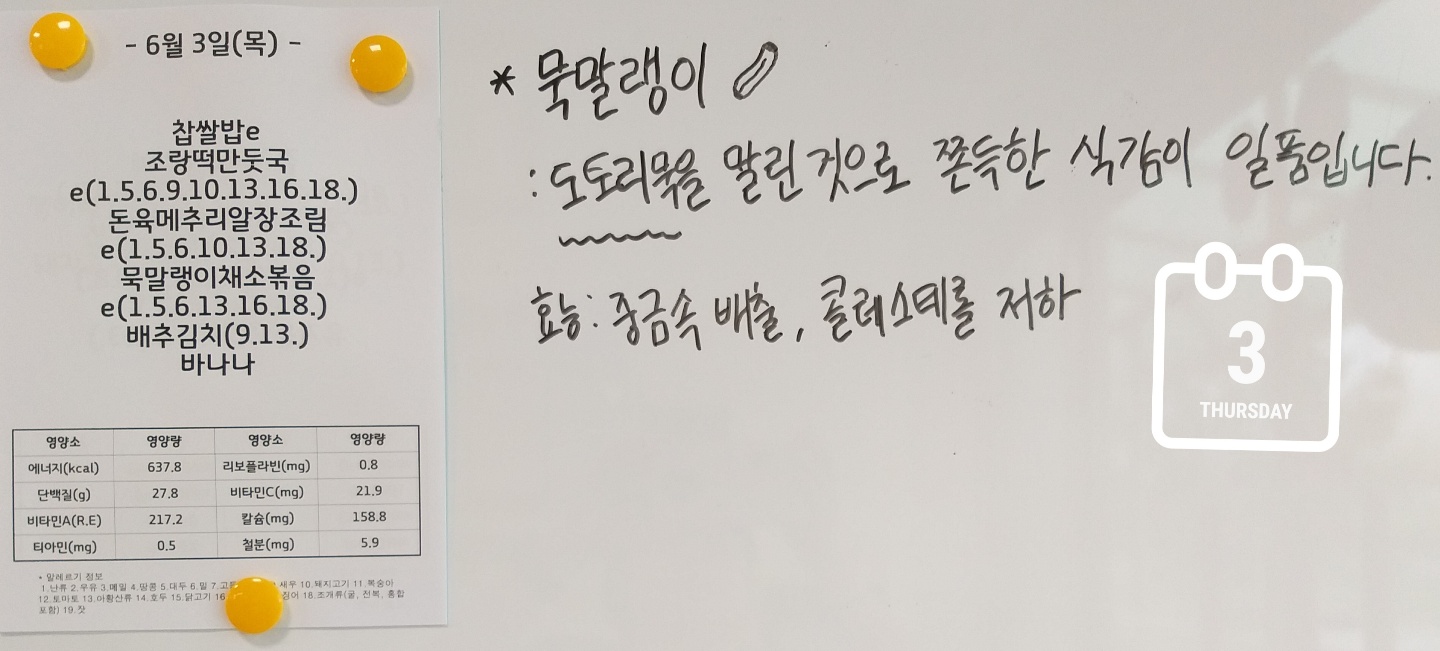 - 6월 3일(목) -
찹쌀밥e
조랑떡만둣국
e(1.5.6.9.10.13.16.18.)
돈육메추리알장조림
e(1.5.6.10.13.18.)
묵말랭이채소볶음
e(1.5.6.13.16.18.)
배추김치(9.13.)
바나나
영양소 영양량 영양소 영양량
에너지(kcal) 637.8 리보플라빈(mg) 0.8
단백질(g) 27.8 비타민C(mg) 21.9
비타민A(R.E) 217.2 칼슘(mg) 158.8
티아민(mg) 0.5 철분(mg) 5.9
* 알레르기 정보
1.난류 2.우유 3.메밀 4.땅콩 5.대두 6.밀 7.고등 새우 10.돼지고기 11.복숭아
12.토마토 13.아황산류 14.호두 15.닭고기 16 징어 18.조개류(굴, 전복, 홍합
포함) 19.잣
* 묵말랭이
: 도토리묵을 말린 것으로 쫀득한 식감이 일품입니다.
효능: 중금속 배출, 콜레스테롤 저하
3
THURSDAY